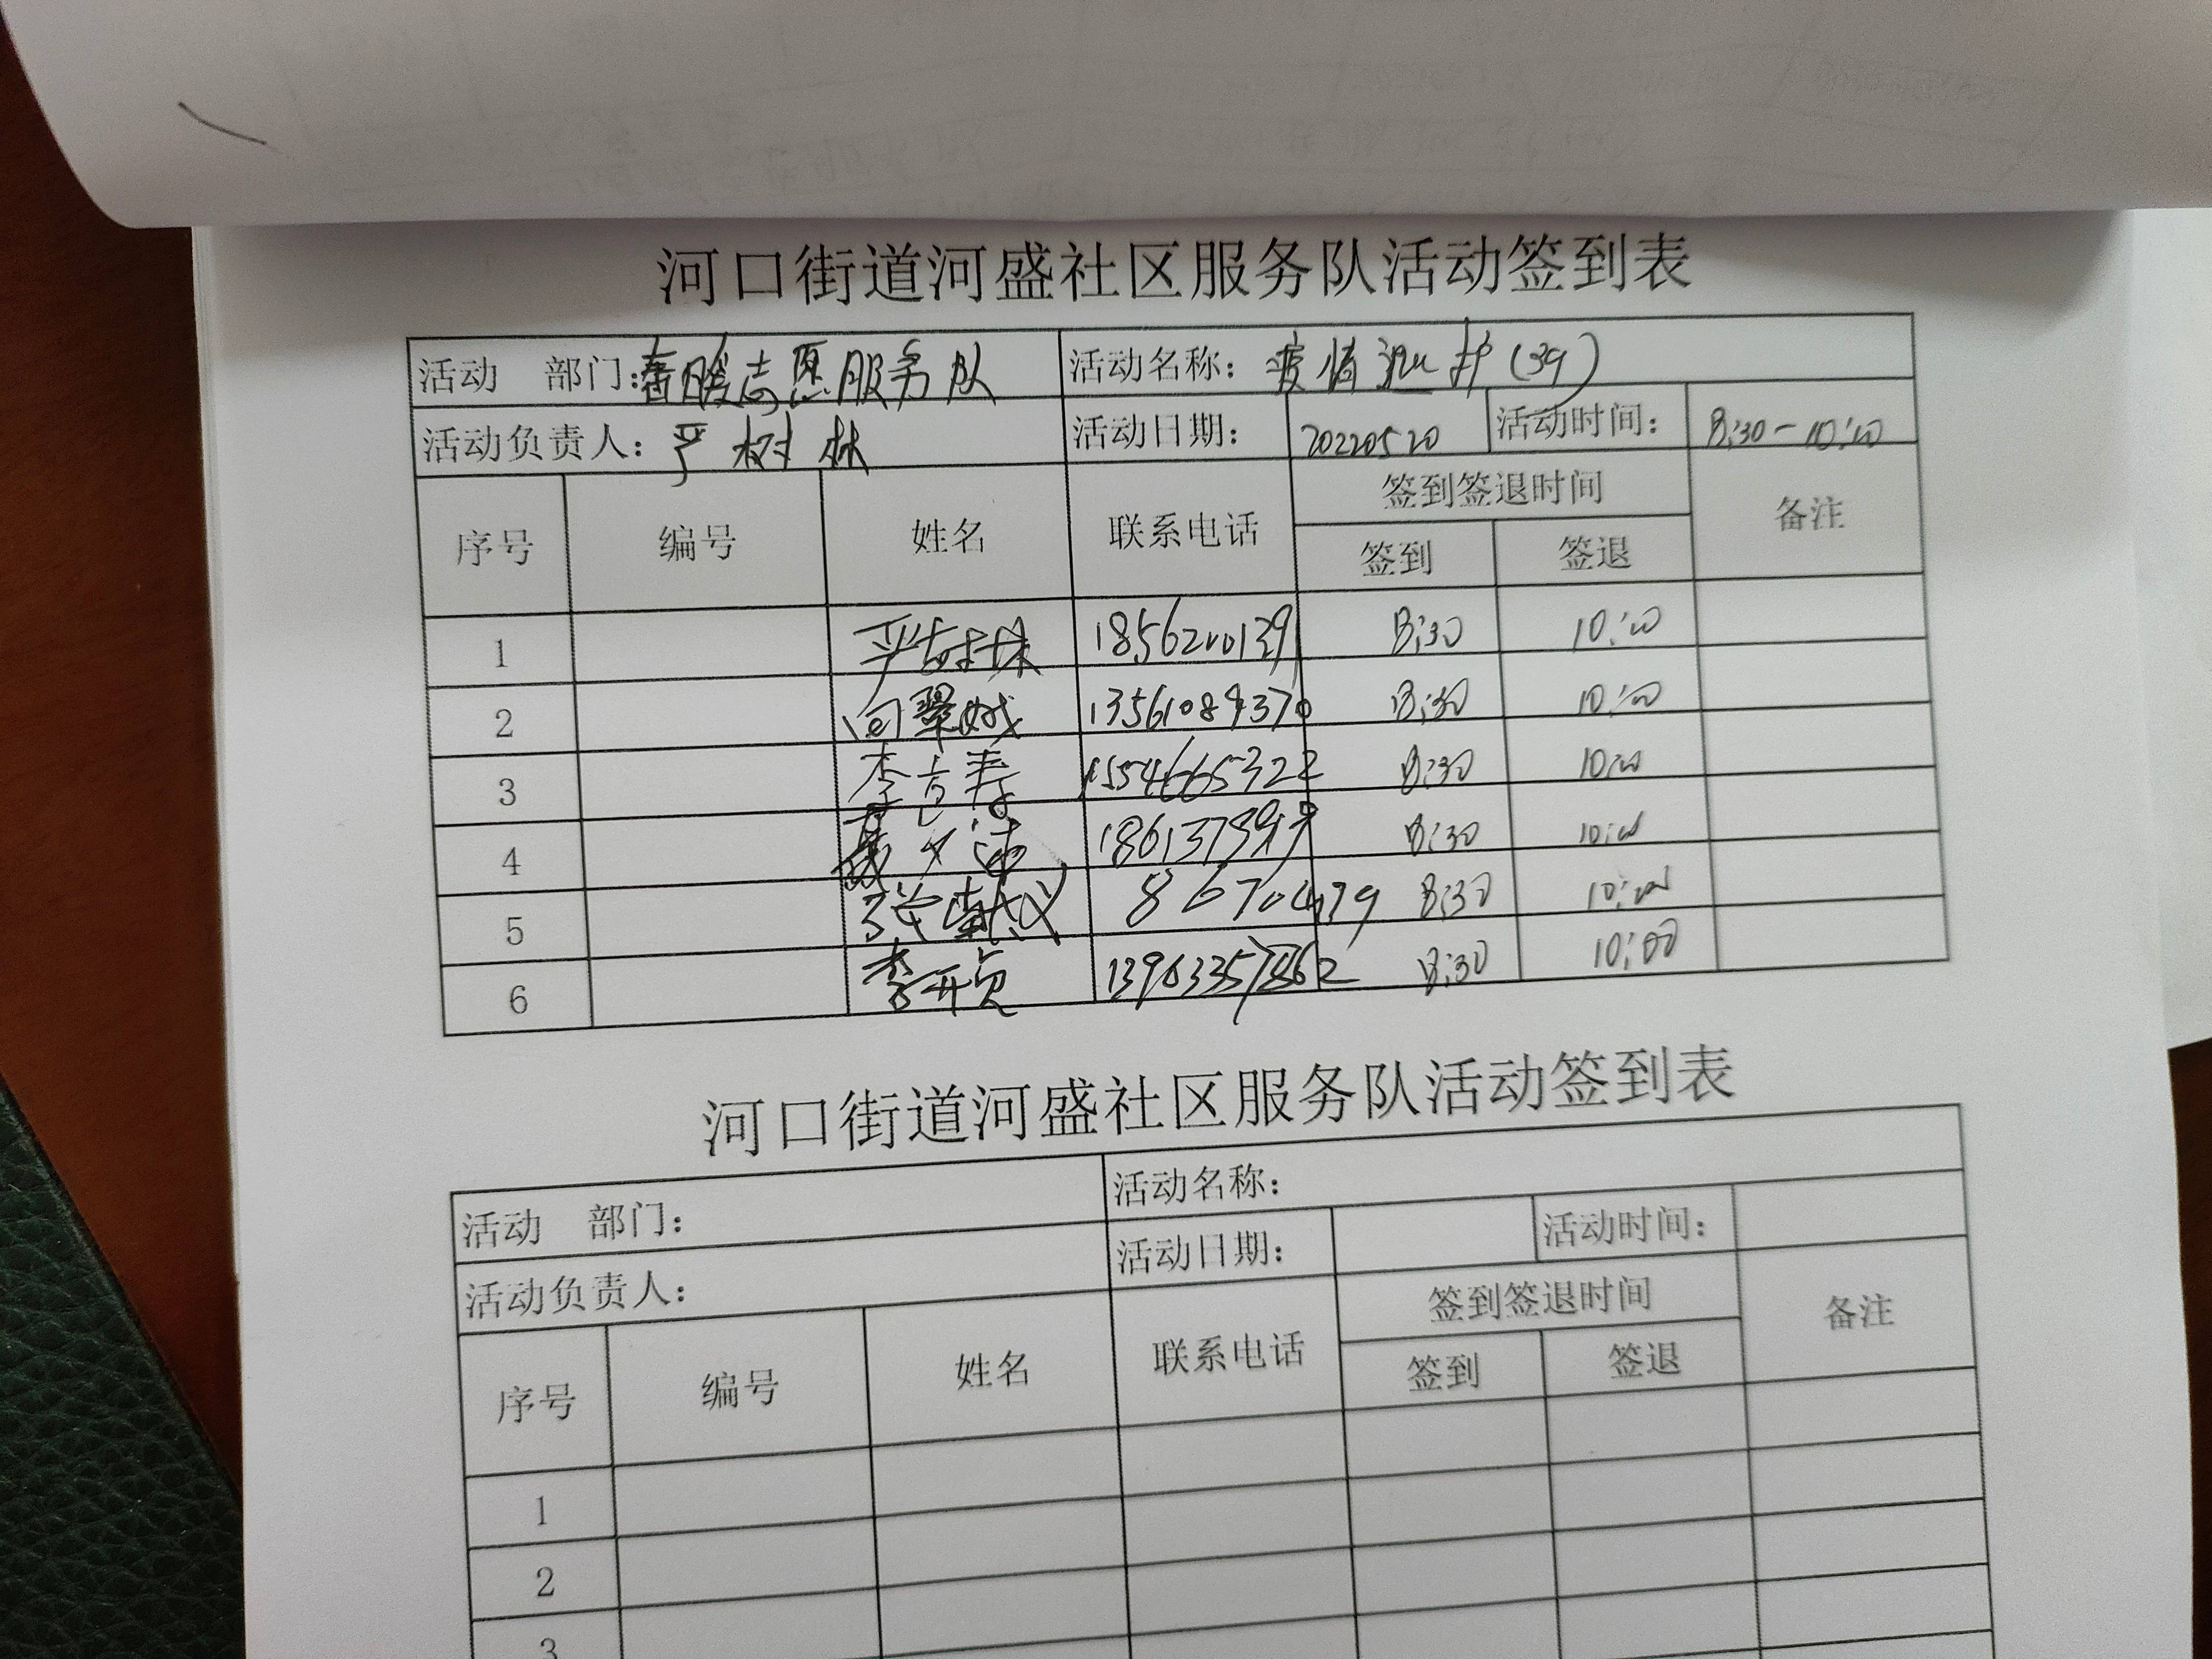 河口街道河盛社区服务队活动签到表
活动 部门:春暖志愿服务队 活动名称: 疫情 (39)
活动负责人: 严树林 活动日期: 20220520 活动时间: 8:30-10:00
序号 编号 姓名 联系电话 签到签退时间 备注
签到 签退
1 严树林 8:30 10:00
2 13561084370 8:30 10:00
3 15546665322 8:30 10:00
4 8:30 10:00
5 张献义 8670479 8:30 10:00
6 李开贞 8:30 10:00
河口街道河盛社区服务队活动签到表
活动 部门: 活动名称:
活动负责人: 活动日期: 活动时间:
序号 编号 姓名 联系电话 签到签退时间 备注
签到 签退
1
2
3